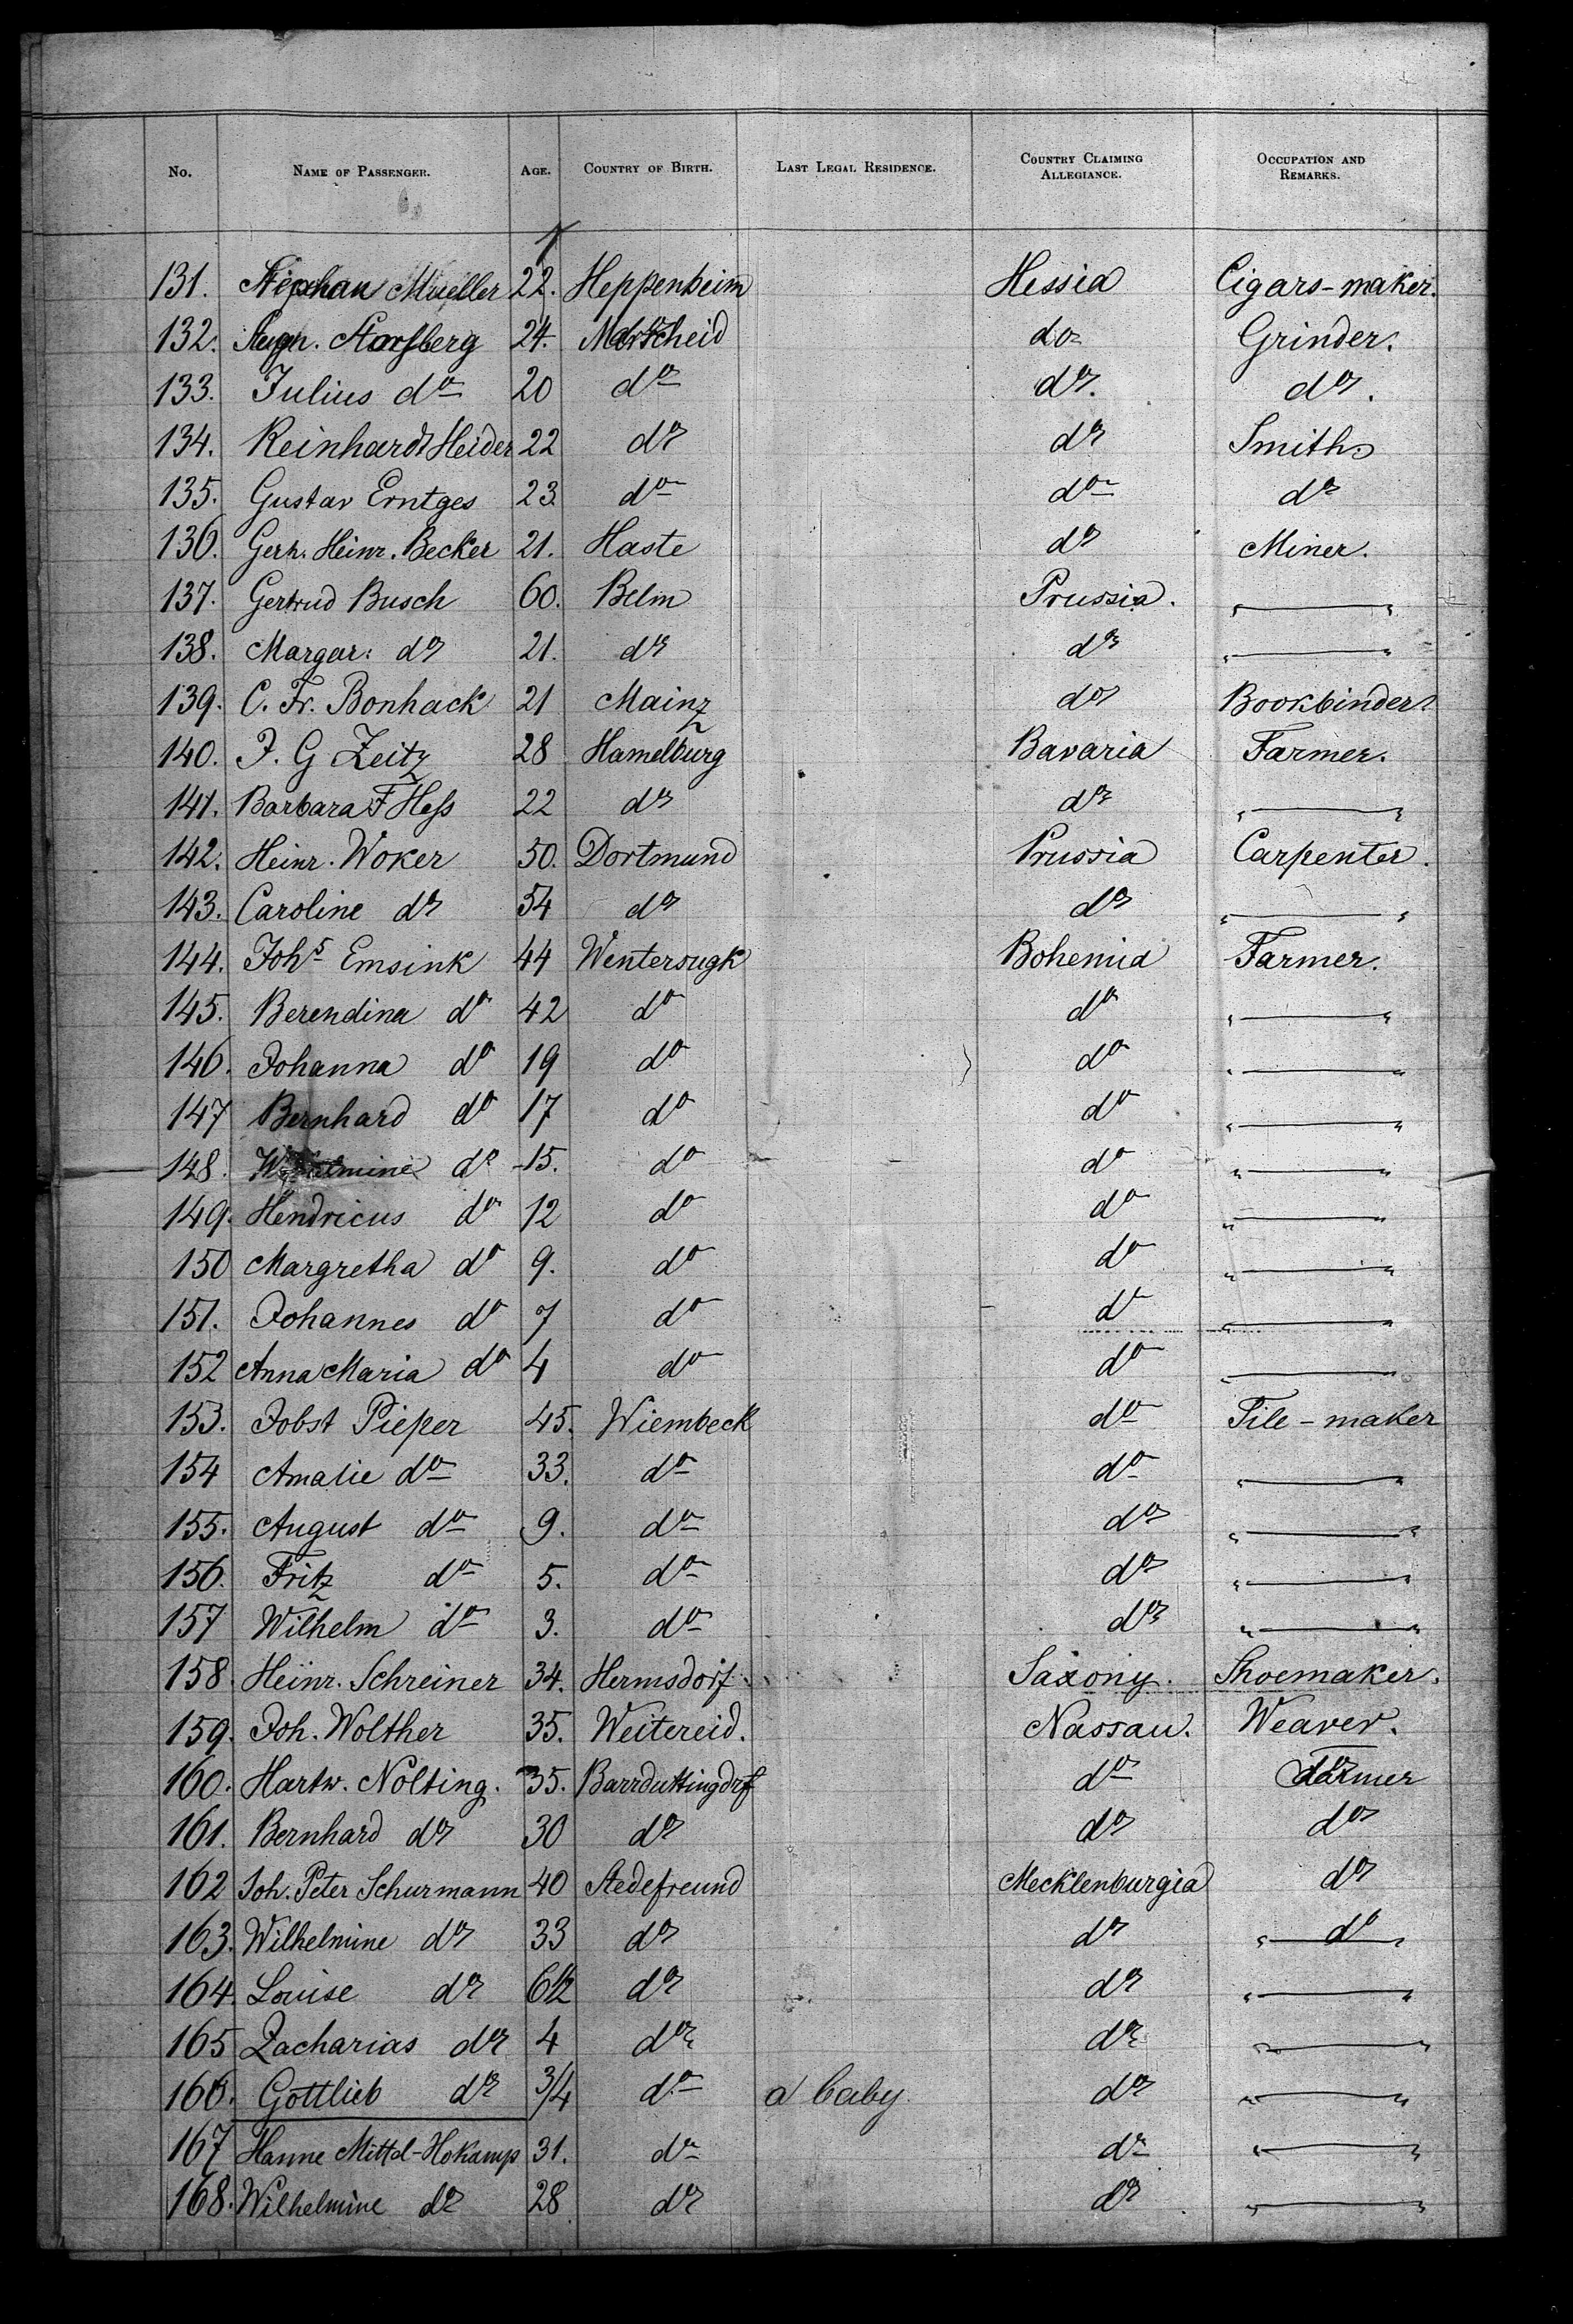 No. Name of Passenger. Age. Country of Birth. Last Legal Residence. Country Claiming Allegiance. Occupation and Remarks.
131. Stephan Mueller 22. Heppenheim Hessia Cigars-maker.
132. 24. do Grinder.
133. Julius do 20 do do. do.
134. Reinhardt Heider 22 do do Smith
135. Gustav Erntges 23. do do do
136. Gerh. Heinr. Becker 21. Haste do Miner.
137. Gertrud Busch 60. Belm Prussia. " — "
138. Margar: do 21. do do " — "
139. C. Fr. Bonhack 21 Mainz do Bookbinder
140. J. G Zeitz 28 Hamelburg Bavaria Farmer.
141. Barbara F Hess 22 do do " — "
142. Heinr. Woker 50. Dortmund Prussia Carpenter.
143. Caroline do 54 do do " — "
144. Johs Emsink 44 Wentersugk Bohemia Farmer.
145. Berendina do 42 do do " — "
146. Johanna do 19 do do " — "
147 Bernhard do 17 do do " — "
148. Wilhelmine do 15. do do " — "
149. Hendricus do 12 do do " — "
150 Margretha do 9. do do " — "
151. Johannes do 7 do do " — "
152 Anna Maria do 4 do do " — "
153. Jobst Pieper 45. Wiembeck do Tile-maker
154 Amalie do 33. do do " — "
155. August do 9. do do " — "
156. Fritz do 5. do do " — "
157 Wilhelm do 3. do do " — "
158. Heinr. Schreiner 34. Hermsdorf Saxony. Shoemaker.
159. Joh. Wolther 35. Weitereid. Nassau. Weaver.
160. Hartw. Nolting. 35. Barrduttingdrf do Farmer
161. Bernhard do 30 do do do
162 Joh. Peter Schurmann 40 Stedefreund Mecklenburgia do
163. Wilhelmine do 33 do do " — do — "
164. Louise do 6 1/2 do do " — "
165 Zacharias do 4 do do " — "
166. Gottlieb do 3/4 do a baby do " — "
167 Hanne Mittel-Hokamp 31. do do " — "
168. Wilhelmine do 28 do do " — "